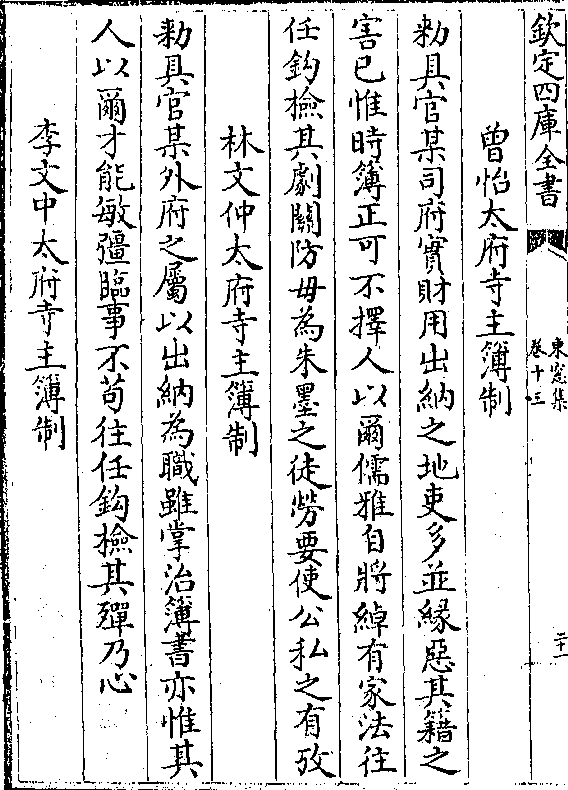 欽定四庫全書
東窻集
卷十三
二十一
曾怡太府寺主簿制
勅具官某司府實財用出納之地吏多並緣惡其籍之
害已惟時簿正可不擇人以爾儒雅自將綽有家法往
任鈎檢其劇關防毋為朱墨之徒勞要使公私之有攷
林文仲太府寺主簿制
勅具官某外府之屬以出納為職雖掌治簿書亦惟其
人以爾才能敏彊臨事不苟往任鈎檢其殫乃心
李文中太府寺主簿制